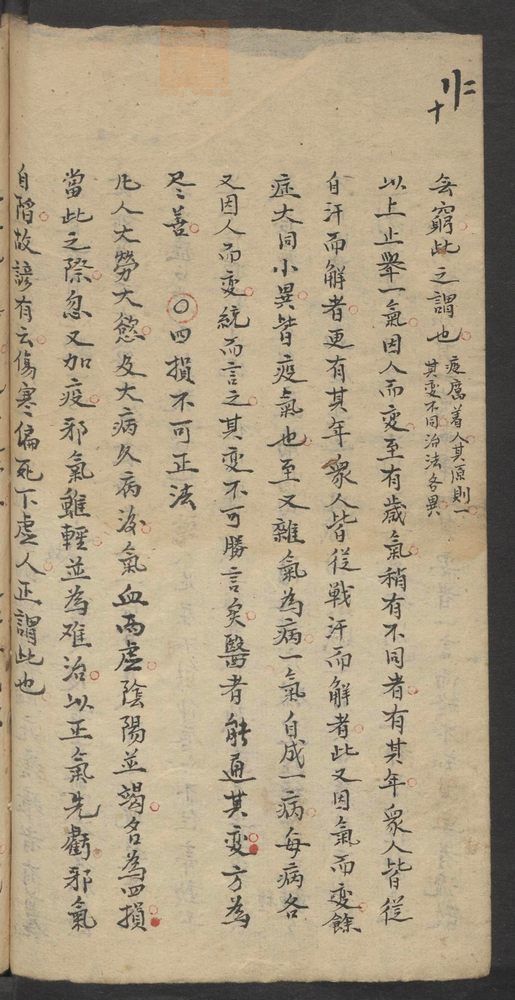 無窮此之謂也 疫癘着人其原則一
其变不同治法各異
以上止舉一氣因人而变至有歲氣稍有不同者有其年衆人皆從
自汗而解者更有其年衆人皆從戰汗而解者此又因氣而变餘
症大同小異皆疫氣也至又雜氣為病一氣自成一病每病各
又因人而变統而言之其变不可勝言矣醫者能通其变方為
尽善〇四損不可正法
凢人大勞大慾及大病久病後氣血両虛陰陽並竭名為四損
當此之際忽又加疫邪氣雖輕並為难治以正氣先虧邪氣
自陷故諺有云傷寒偏死下虛人正謂此也